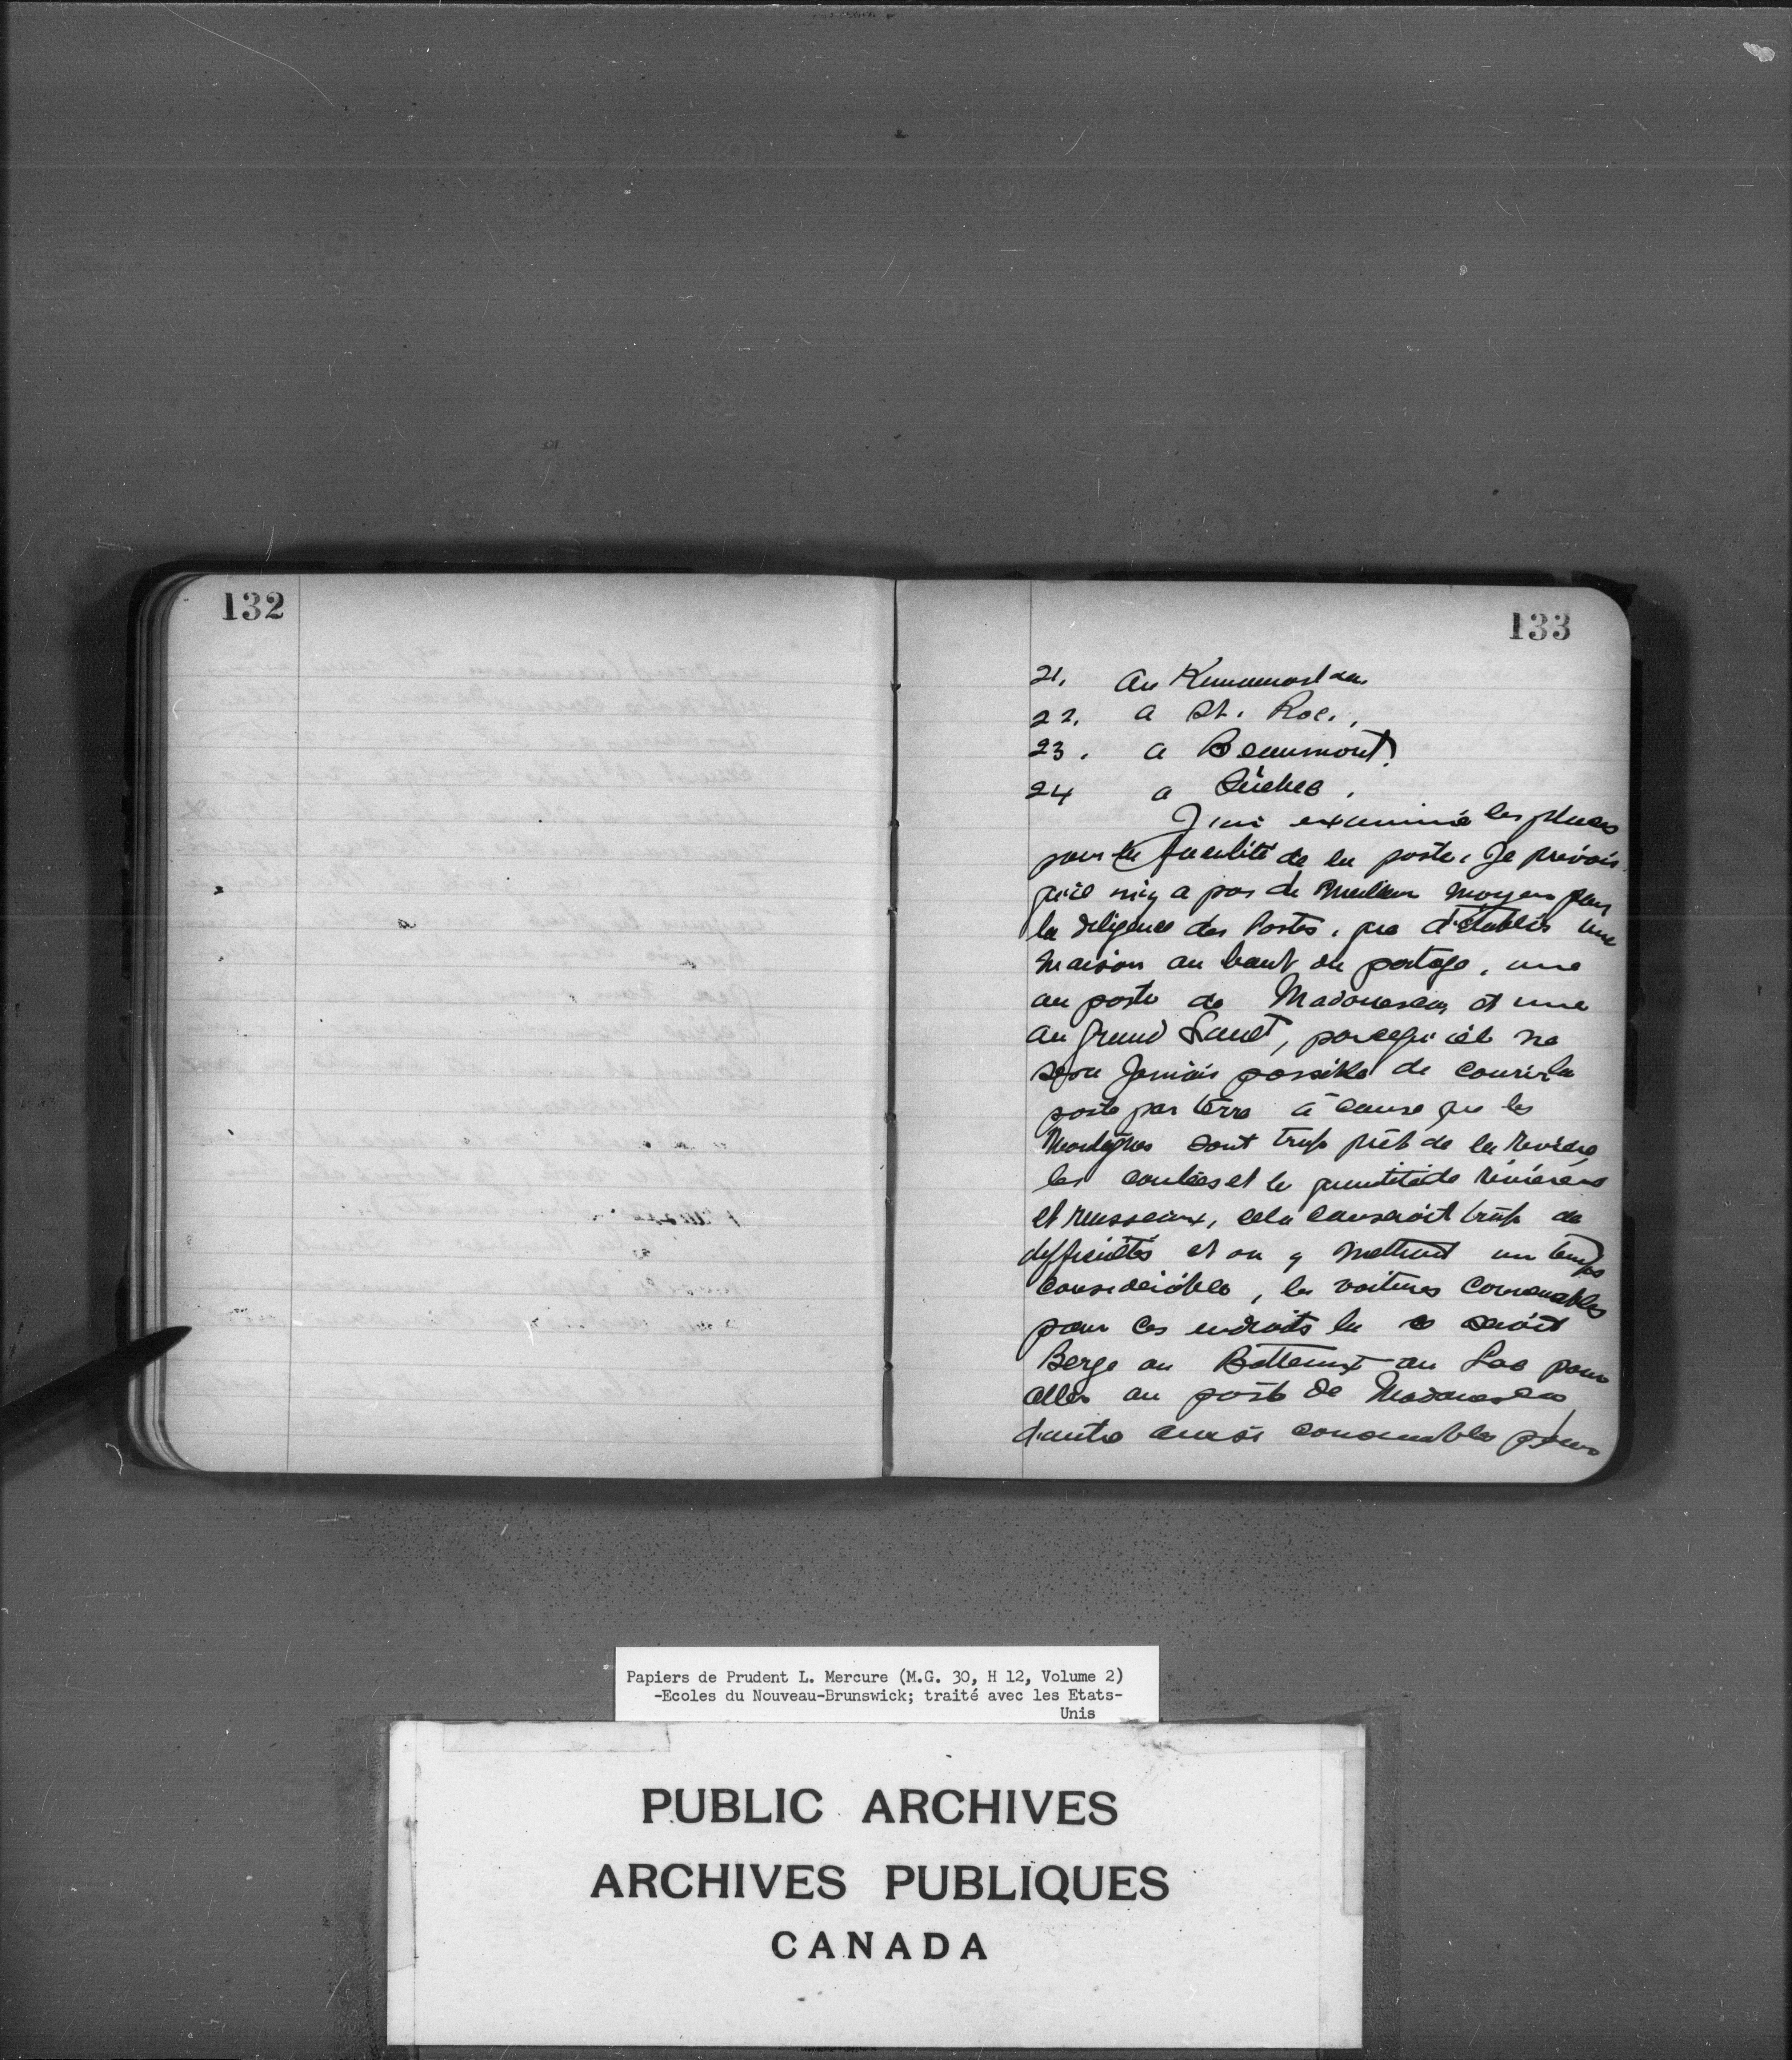 132
133
21. Au Kamouraska
22. a St. Roc.,
23. a Beaumont.
24 a Québec.
J'ai examiné les places
pour la facilité de la poste. Je prévois
qu'il n'y a pas de meilleur moyen pour
la diligence des Postes, que d'établir une
maison au bout du portage, une
au poste de Madoueska, et une
au grand Sault, parcequ'il ne
sera jamais possible de courir la
poste par terre à cause que les
Montagnes sont trop prêt de la rivière
les coulées et la quantité de rivières
et ruisseaux, cela causeroit trop de
difficultés et on y mettroit un temps
considérable, les voitures convenables
pour ces endroits la seroit
Berge ou Batteaux au Lac pour
aller au poste de Madoueska
d'autre aussi convenables pour
Papiers de Prudent L. Mercure (M.G. 30, H 12, Volume 2)
-Ecoles du Nouveau-Brunswick; traité avec les Etats-
Unis
PUBLIC ARCHIVES
ARCHIVES PUBLIQUES
CANADA